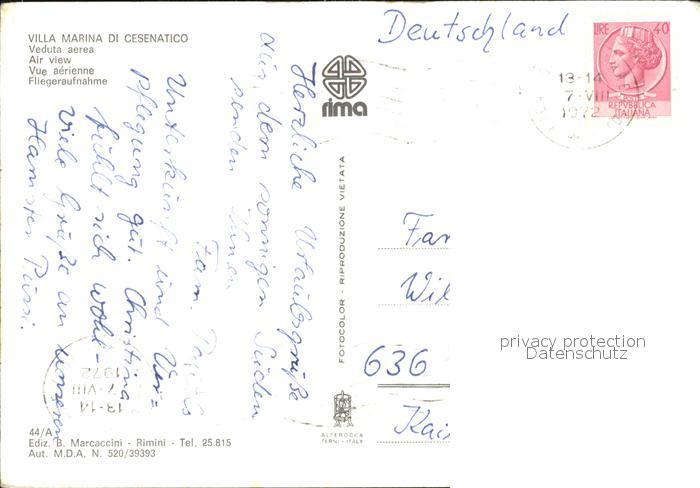 VILLA MARINA DI CESENATICO
Veduta aerea
Air view
Vue aérienne
Fliegeraufnahme
Deutschland
LIRE 40
REPVBBLICA
ITALIANA
13-14
7-VIII
1972
rima
Herzliche Urlaubsgrüße
aus dem sonnigen Süden
senden Ihnen
Fam.
Unterkunft und Ver=
pflegung gut. Christina
fühlt sich wohl-
Viele Grüße an unseren
Hamster
FOTOCOLOR - RIPRODUZIONE VIETATA
Fam
Wil
636
Kai
privacy protection
Datenschutz
13-14
7-VIII
1972
ALTEROCCA
TERNI-ITALY
44/A
Ediz. B. Marcaccini - Rimini - Tel. 25.815
Aut. M.D.A. N. 520/39393